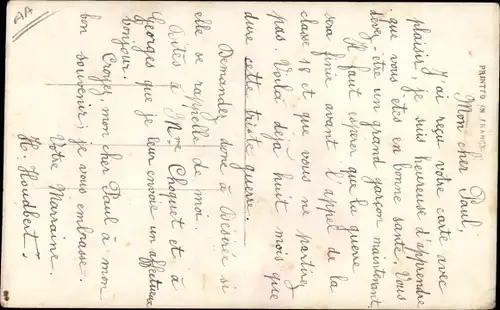 AA
PRINTED IN FRANCE
Mon cher Paul,
J'ai reçu votre carte avec
plaisir, je suis heureuse d'apprendre
que vous êtes en bonne santé. Vous
devez être un grand garçon maintenant,
Il faut espérer que la guerre
sera finie avant l'appel de la
classe 18 et que vous ne partirez
pas. Voilà déjà huit mois que
dure cette triste guerre.
Demandez donc à Désirée si
elle se rappelle de moi.
Dites à Mme Choquet et à
Georges que je leur envoie un affectueux
bonjour.
Croyez, mon cher Paul à mon
bon souvenir, je vous embrasse.
Votre Marraine.
H. Houdbert.